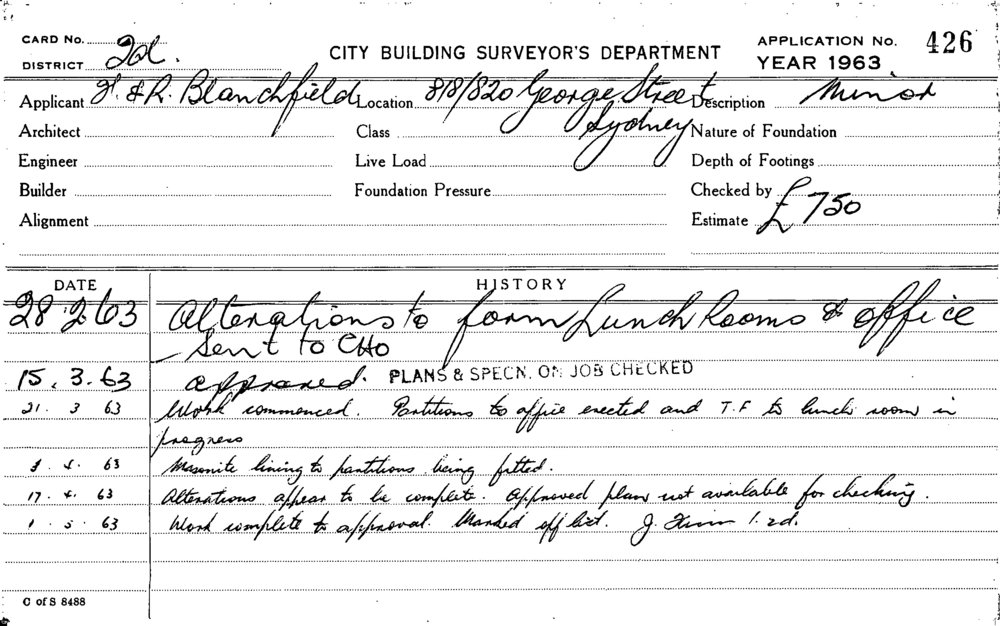 CARD No.
DISTRICT 2d.
CITY BUILDING SURVEYOR'S DEPARTMENT
APPLICATION No. 426
YEAR 1963
Applicant & R. Blanchfield Location 818/820 George Street Description Minor
Sydney
Architect Class Nature of Foundation
Engineer Live Load Depth of Footings
Builder Foundation Pressure Checked by
Alignment Estimate £750
DATE HISTORY
28.2.63 Alterations to form Lunch Rooms & office
– Sent to CHO
15.3.63 approved. PLANS & SPECN. ON JOB CHECKED
21.3 63 Work commenced. Partitions to office erected and T.F to lunch room in
progress
3.4.63 Masonite lining to partitions being fitted.
17.4.63 Alterations appear to be complete. Approved plan not available for checking.
1.5.63 Work complete to approval. Marked off list. J. 2d.
C of S 8488